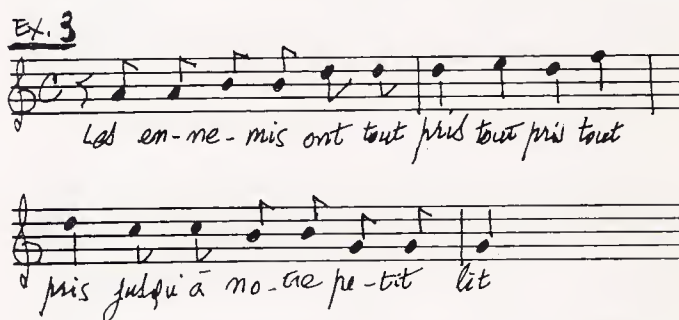 Ex. 3
Les en-ne-mis ont tout pris tout pris tout
pris jusqu'à no-tre pe-tit lit